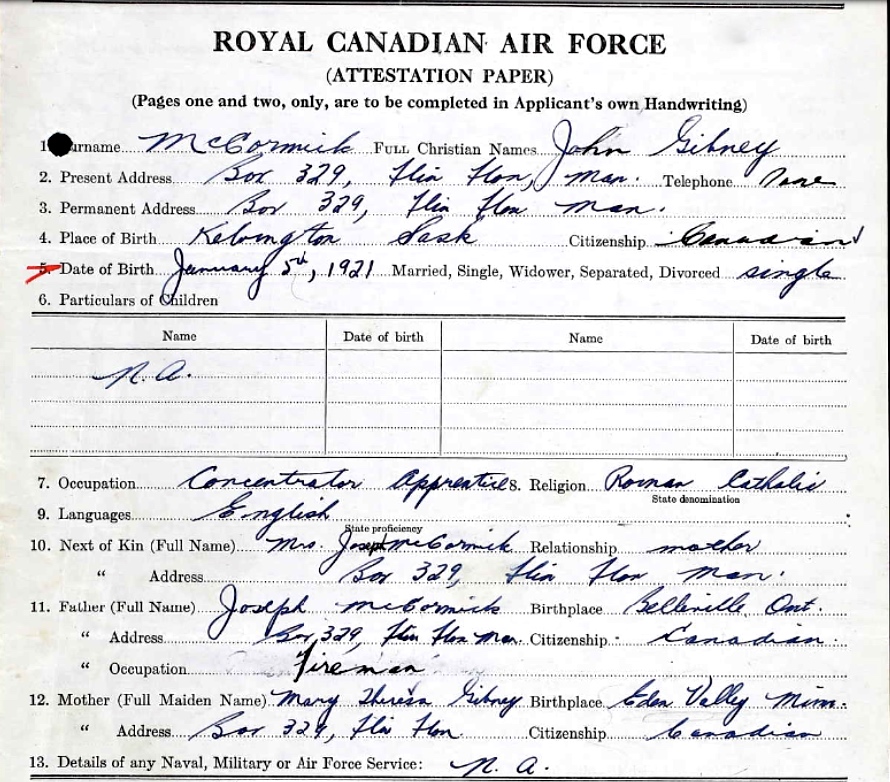 ROYAL CANADIAN AIR FORCE
(ATTESTATION PAPER)
(Pages one and two, only, are to be completed in Applicant's own Handwriting)
1 urname McCormick FULL Christian Names John Gibney
2. Present Address Box 329, Flin Flon, Man. Telephone None
3. Permanent Address Box 329, Flin Flon Man.
4. Place of Birth Kelvington Sask Citizenship Canadian
5. Date of Birth January 5th, 1921 Married, Single, Widower, Separated, Divorced single
6. Particulars of Children
Name Date of birth Name Date of birth
N. A.
7. Occupation Concentrator Apprentice 8. Religion Roman Catholic
State denomination
9. Languages English
State proficiency
10. Next of Kin (Full Name) Mrs. Joseph McCormick Relationship mother
" Address Box 329, Flin Flon Man.
11. Father (Full Name) Joseph McCormick Birthplace Belleville Ont.
" Address Box 329, Flin Flon Man. Citizenship Canadian
" Occupation Fireman
12. Mother (Full Maiden Name) Mary Theresa Gibney Birthplace Eden Valley Minn.
" Address Box 329, Flin Flon Citizenship Canadian
13. Details of any Naval, Military or Air Force Service: N. A.